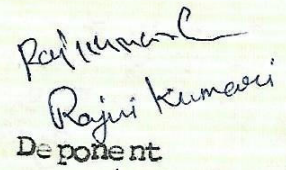 Rajkumar
Rajni Kumari
Deponent